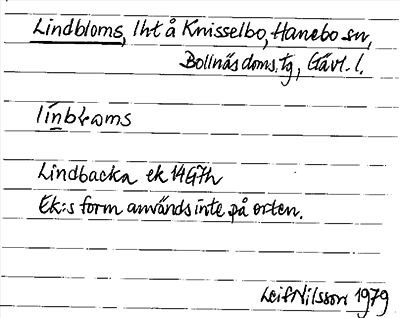 Lindbloms, lht å Knisselbo, Hanebo sn,
Bollnäs doms.tg, Gävl. l.
línbḷωms
Lindbacka ek 14G7h
Ek:s form används inte på orten.
Leif Nilsson 1979